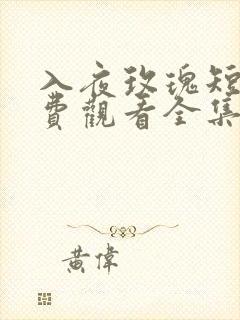 入夜玫瑰短
費觀看全集
黃偉